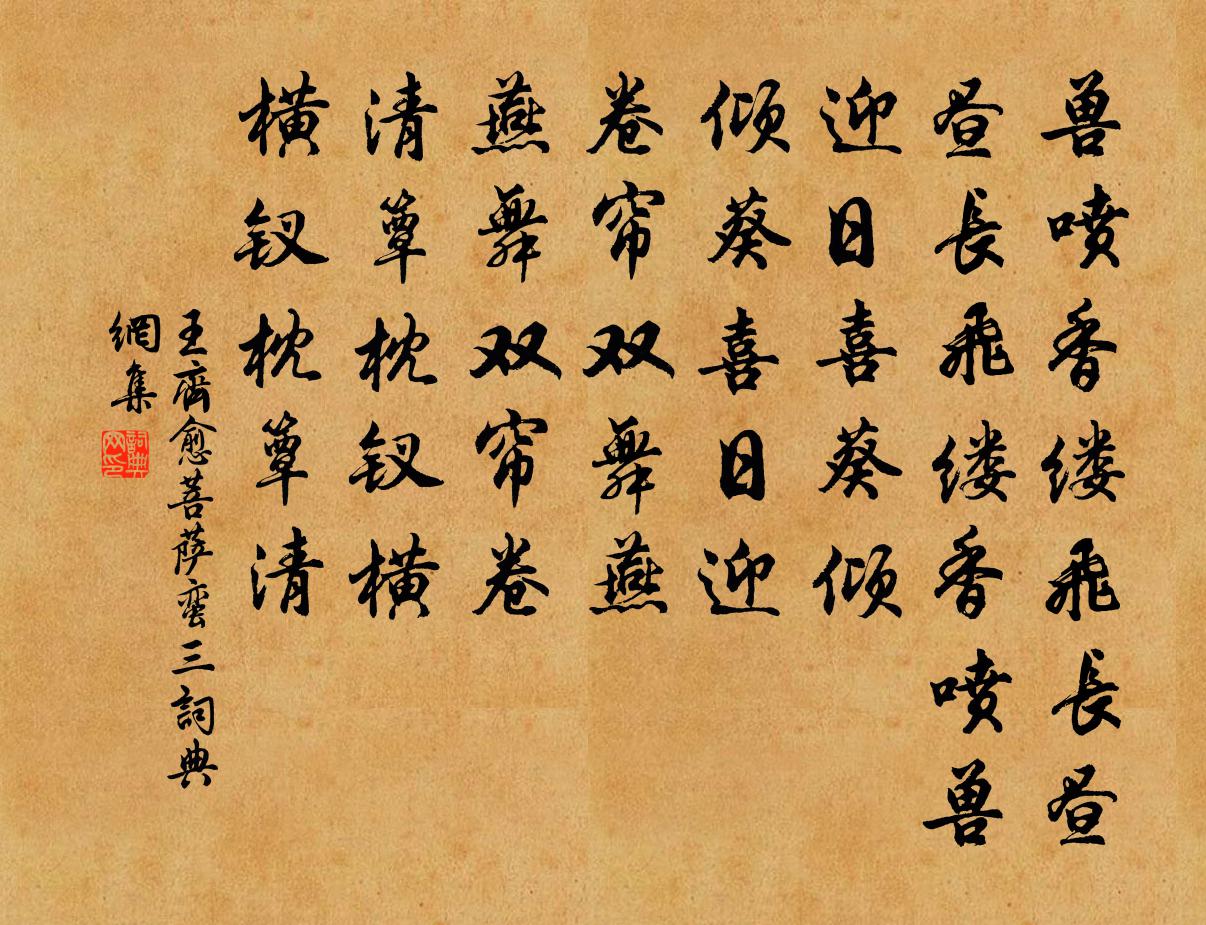 兽喷香缕飞長昼
昼長飛缕香喷兽
迎日喜葵倾
倾葵喜日迎
卷帘双舞燕
燕舞双帘卷
清簟枕钗横
横钗枕簟清
王齊愈菩萨蛮三詞典
網集
詞典网印